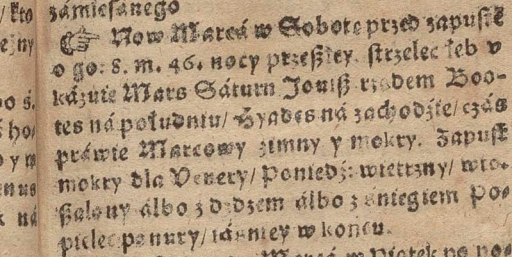 zámießánego
☞ Now Marcá w Sobotę przed zapustẽ
o go: 8. m. 46. nocy przeßłey. strzelec łeb v
kázuie Mars Sáturn Jouiß rzędem Boo-
tes ná południu/ Hyades ná zachodźie/ czás
práwie Marcowy zimny y mokry. Zapust
mokry dla Venery/ Poniedź: wietrzny/
álbo z dżdżem álbo z śniegiem Po-
pielec ponury/ iáśniey w końcu.
Marcá w Piątek po